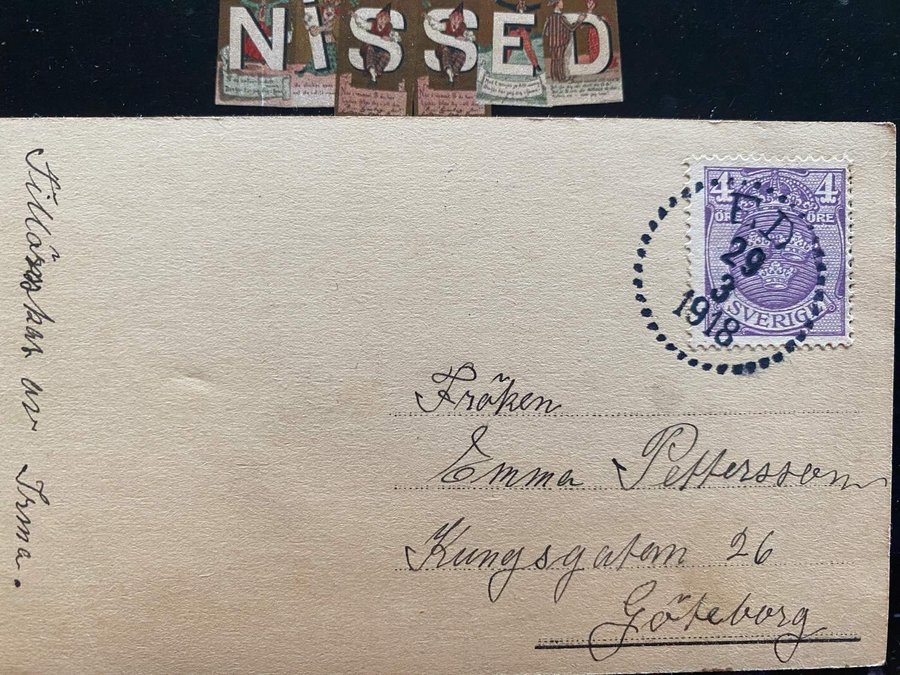 NISSED
4 4
ÖRE ÖRE
SVERIGE
ED
29
3
1918
Fröken
Emma Pettersson
Kungsgatan 26
Göteborg
Tillönskas av Irma.